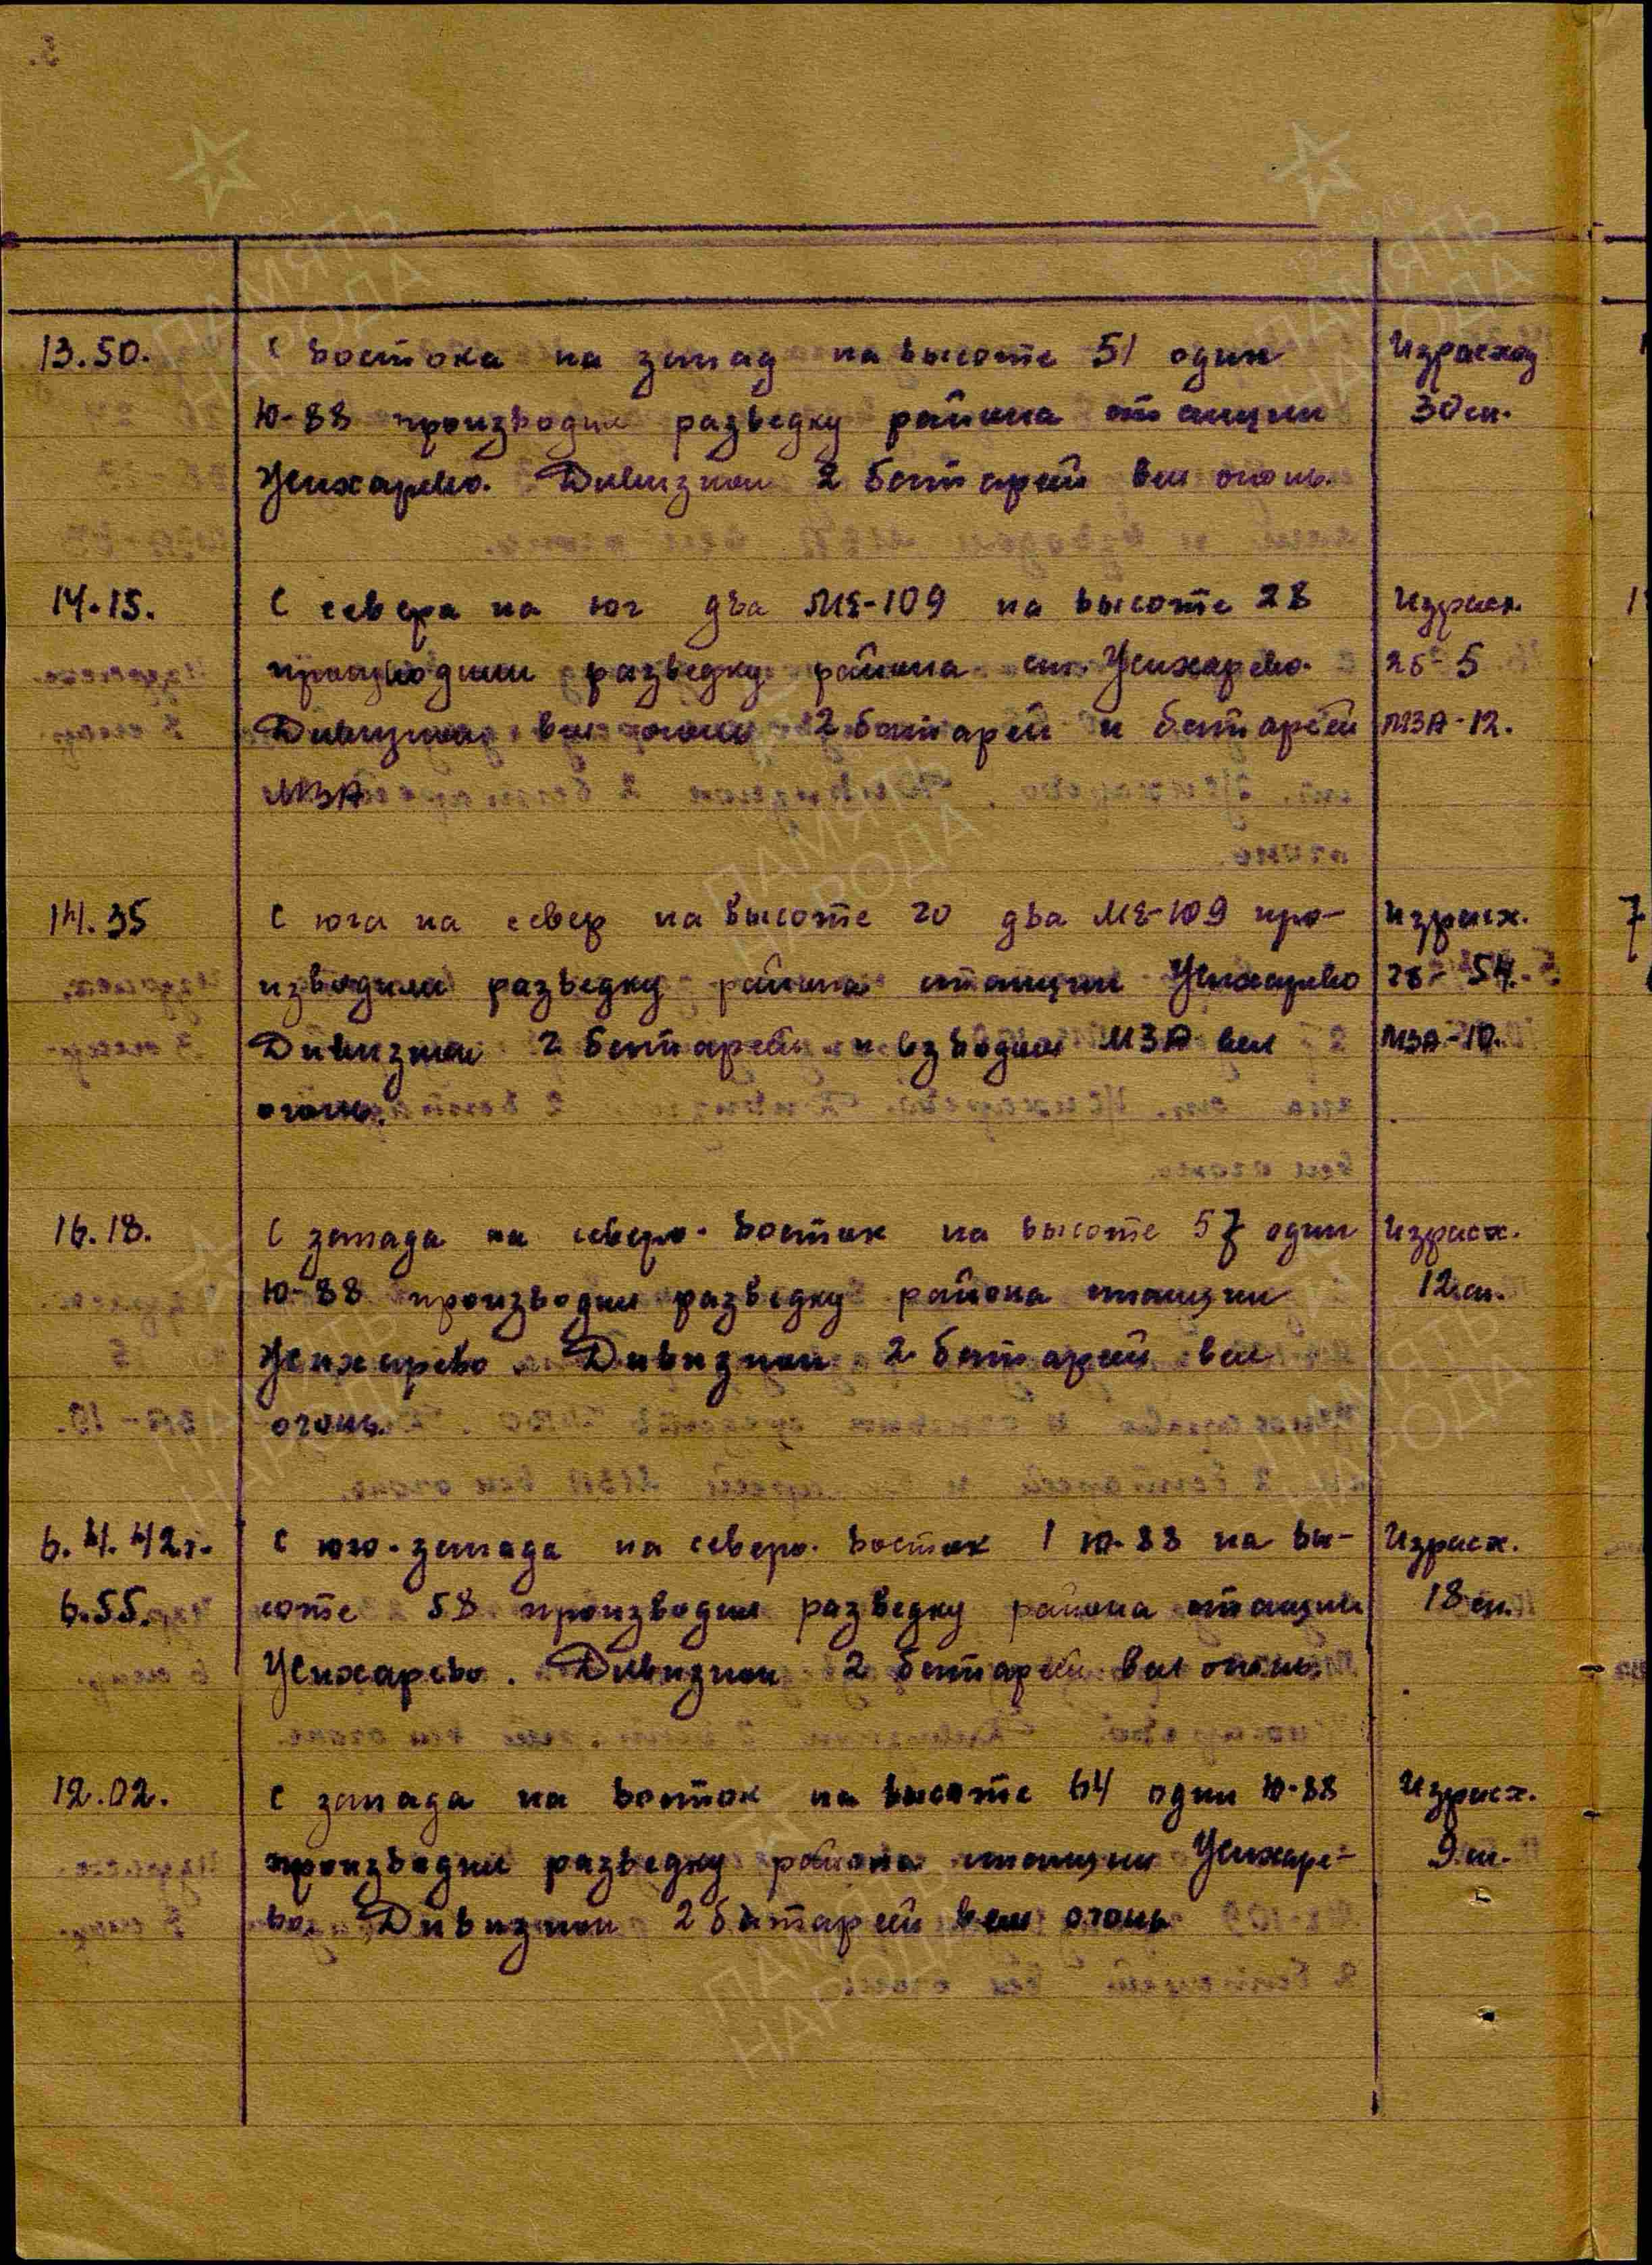 13.50. С востока на запад на высоте 51 один Израсход
Ю-88 производил разведку района станции 30 сн.
Жихарево. Дивизион 2 батарей вел огонь.
14.15. С севера на юг два МЕ-109 на высоте 28 Израсх.
производили разведку района ст. Жихарево. 5
Дивизион вел огонь 2 батарей и батарей МЗА-12.
МЗА
14.35 С юга на север на высоте 20 два МЕ-109 про- Израсх.
изводили разведку района станции Жихарево 54.
Дивизион 2 батарей и взводом МЗА вел МЗА-10.
огонь.
16.18. С запада на северо-восток на высоте 57 один Израсх.
Ю-88 производил разведку района станции 12 сн.
Жихарево. Дивизион 2 батарей вел
огонь.
6.4.42г. С юго-запада на северо-восток 1 Ю-88 на вы- Израсх.
6.55. соте 58 производил разведку района станции 18 сн.
Жихарево. Дивизион 2 батарей вел огонь.
12.02. С запада на восток на высоте 64 один Ю-88 Израсх.
производил разведку района станции Жихаре- 9 сн.
во. Дивизион 2 батарей вел огонь
ПАМЯТЬ
НАРОДА